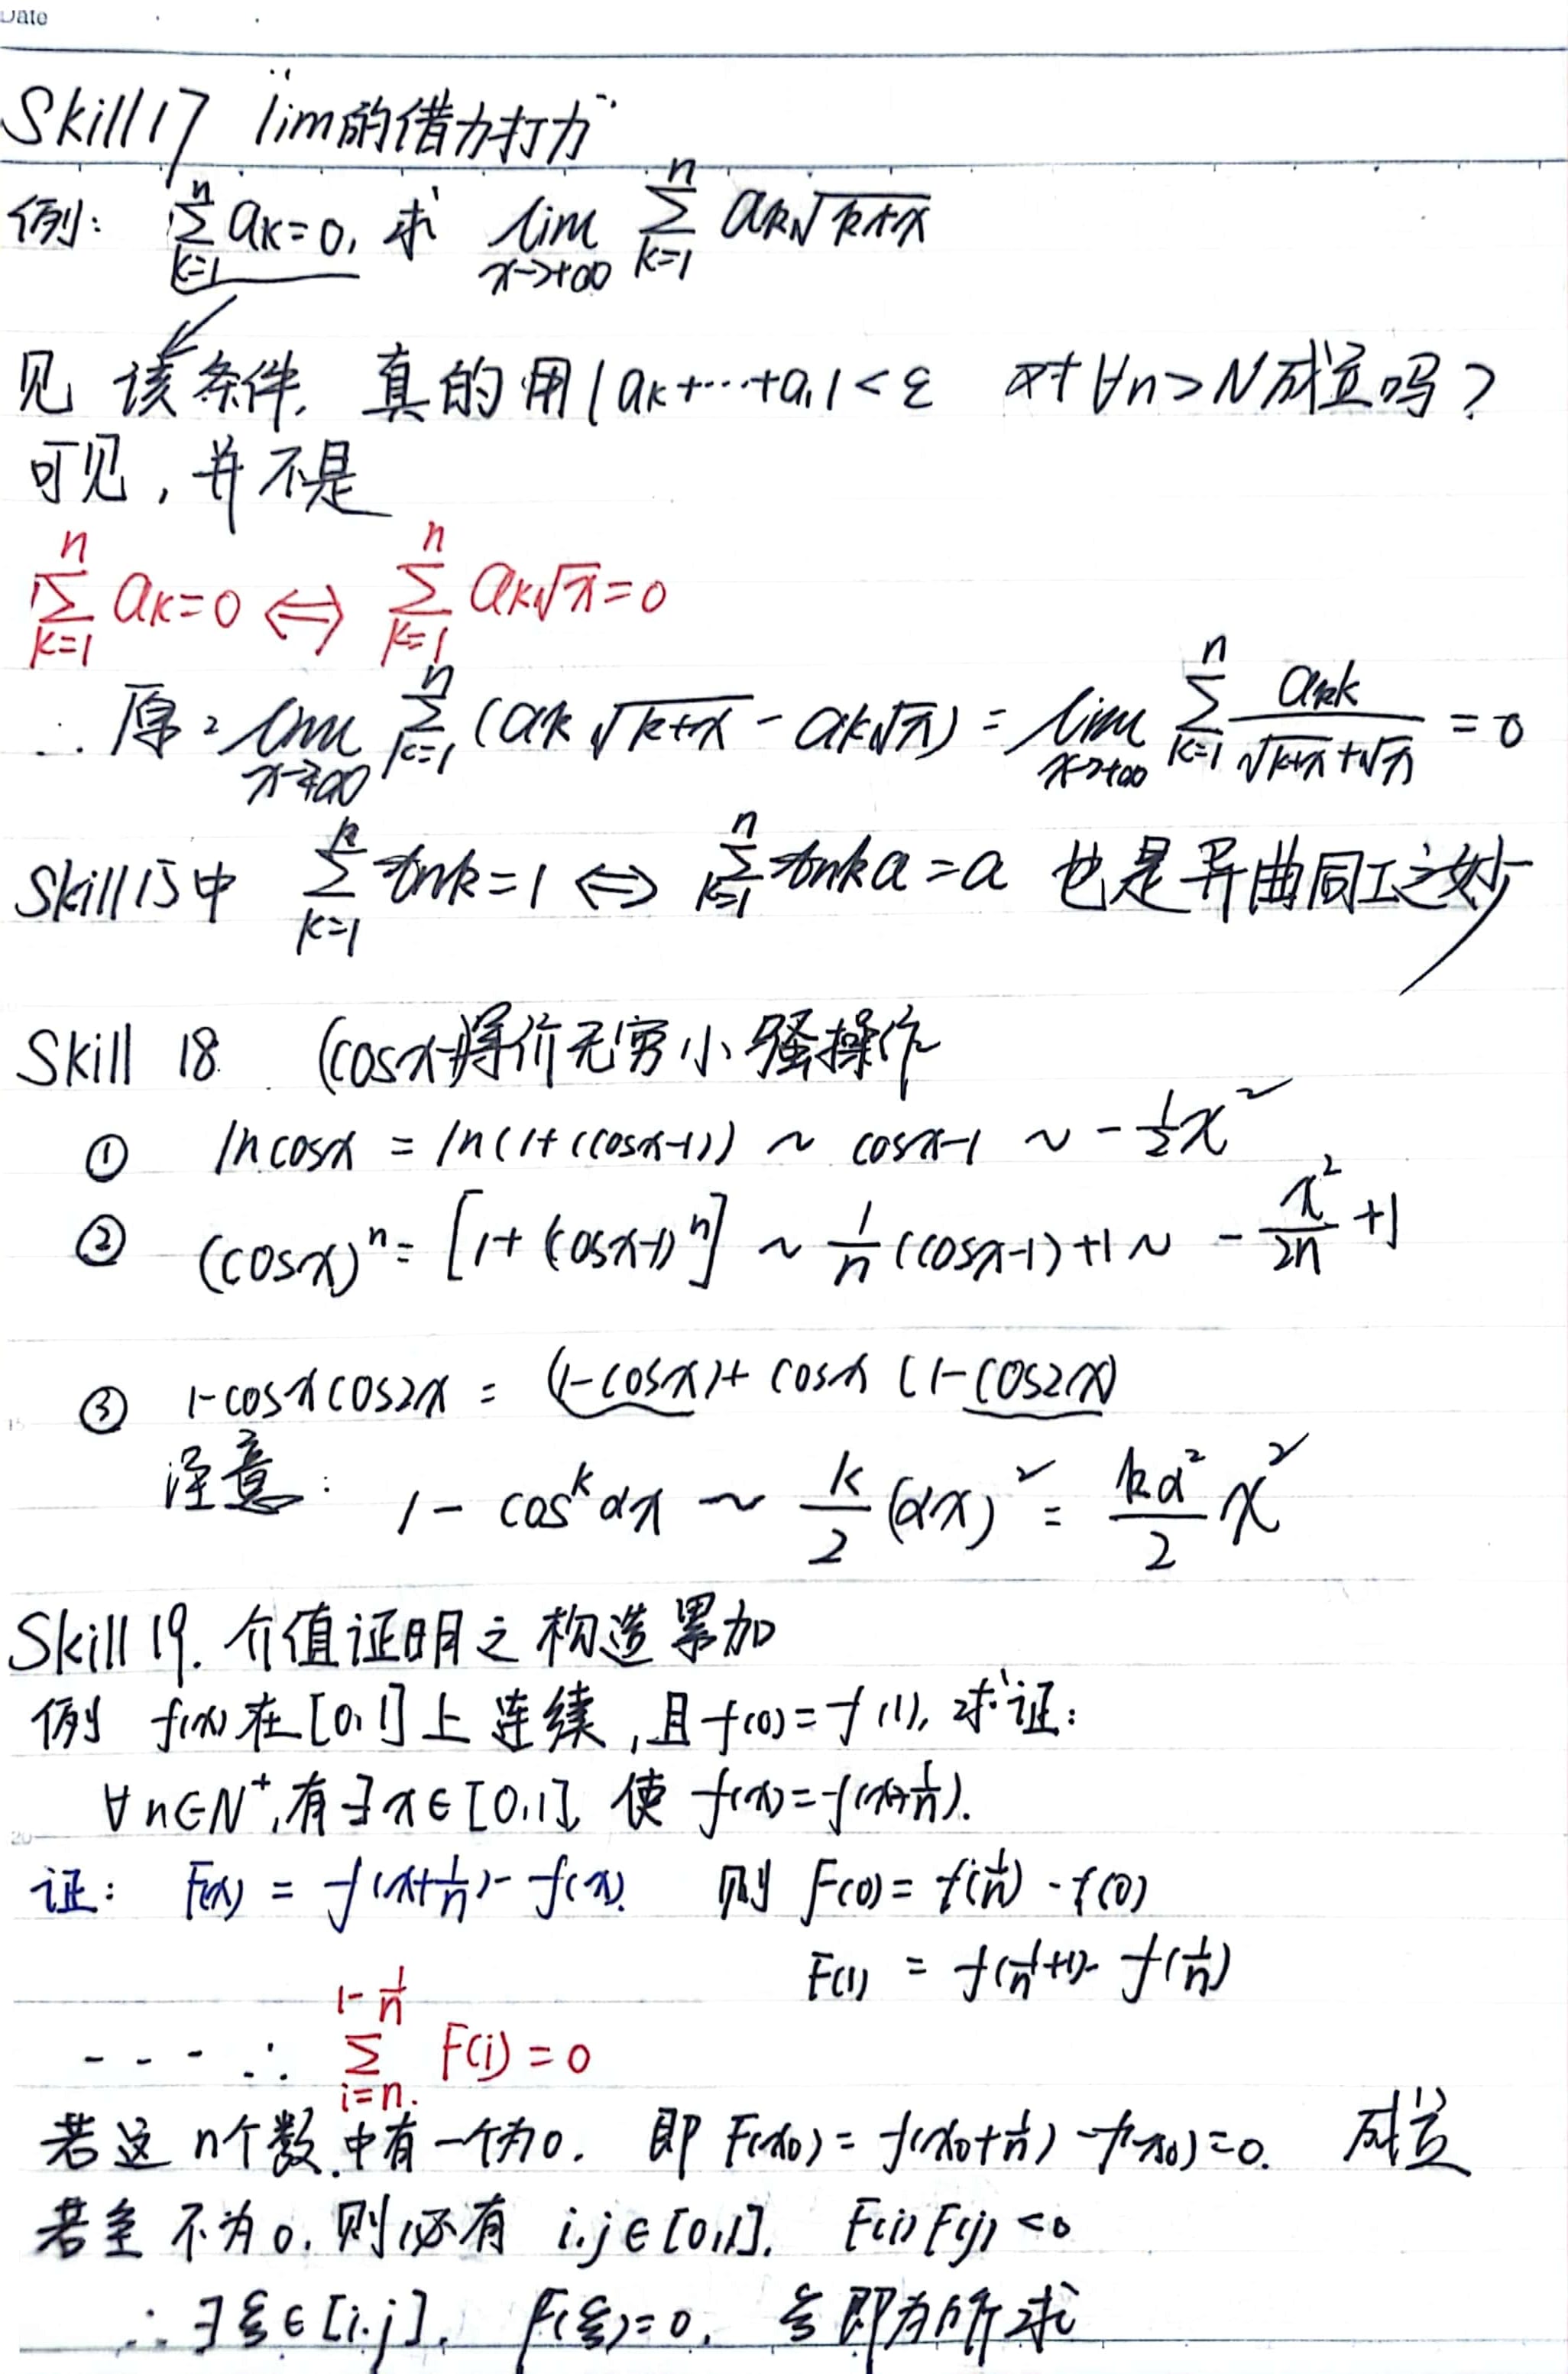 Date
Skill 17 "lim的借力打力"
例: ∑_{k=1}^{n} a_k=0, 求 lim_{x→+∞} ∑_{k=1}^{n} a_k√(k+x)
见 该条件, 真的用|a_k+…+a_1|<ε 对∀n>N成立吗?
可见, 并不是
∑_{k=1}^{n} a_k=0 ⇔ ∑_{k=1}^{n} a_k√x=0
∴ 原=lim_{x→+∞} ∑_{k=1}^{n} (a_k√(k+x) - a_k√x) = lim_{x→+∞} ∑_{k=1}^{n} a_k k/(√(k+x)+√x) = 0
Skill 15中 ∑_{k=1}^{n} t_{nk}=1 ⇔ ∑_{k=1}^{n} t_{nk}a=a 也是异曲同工之妙
Skill 18. (cosx-1)等价无穷小骚操作
① lncosx = ln(1+(cosx-1)) ~ cosx-1 ~ -½x²
② (cosx)^n = [1+(cosx-1)^n] ~ 1/n (cosx-1)+1 ~ -x²/2n +1
③ 1-cosxcos2x = (1-cosx)+cosx(1-cos2x)
注意: 1-cos^k αx ~ k/2 (αx)² = kα²/2 x²
Skill 19. 介值证明之构造累加
例 f(x)在[0,1]上连续,且f(0)=f(1), 求证:
∀n∈N⁺,有∃x∈[0,1], 使 f(x)=f(x+1/n).
证: F(x) = f(x+1/n)-f(x). 则 F(0)=f(1/n)-f(0)
F(1) = f(1/n+1)-f(1/n)
---- ∴ ∑_{i=n.}^{1-1/n} F(i)=0
若这n个数.中有一个为0. 即F(x₀)=f(x₀+1/n)-f(x₀)=0. 成立
若全不为0, 则必有 i.j∈[0,1]. F(i)F(j)<0
∴ ∃ξ∈[i.j], F(ξ)=0. ξ即为所求